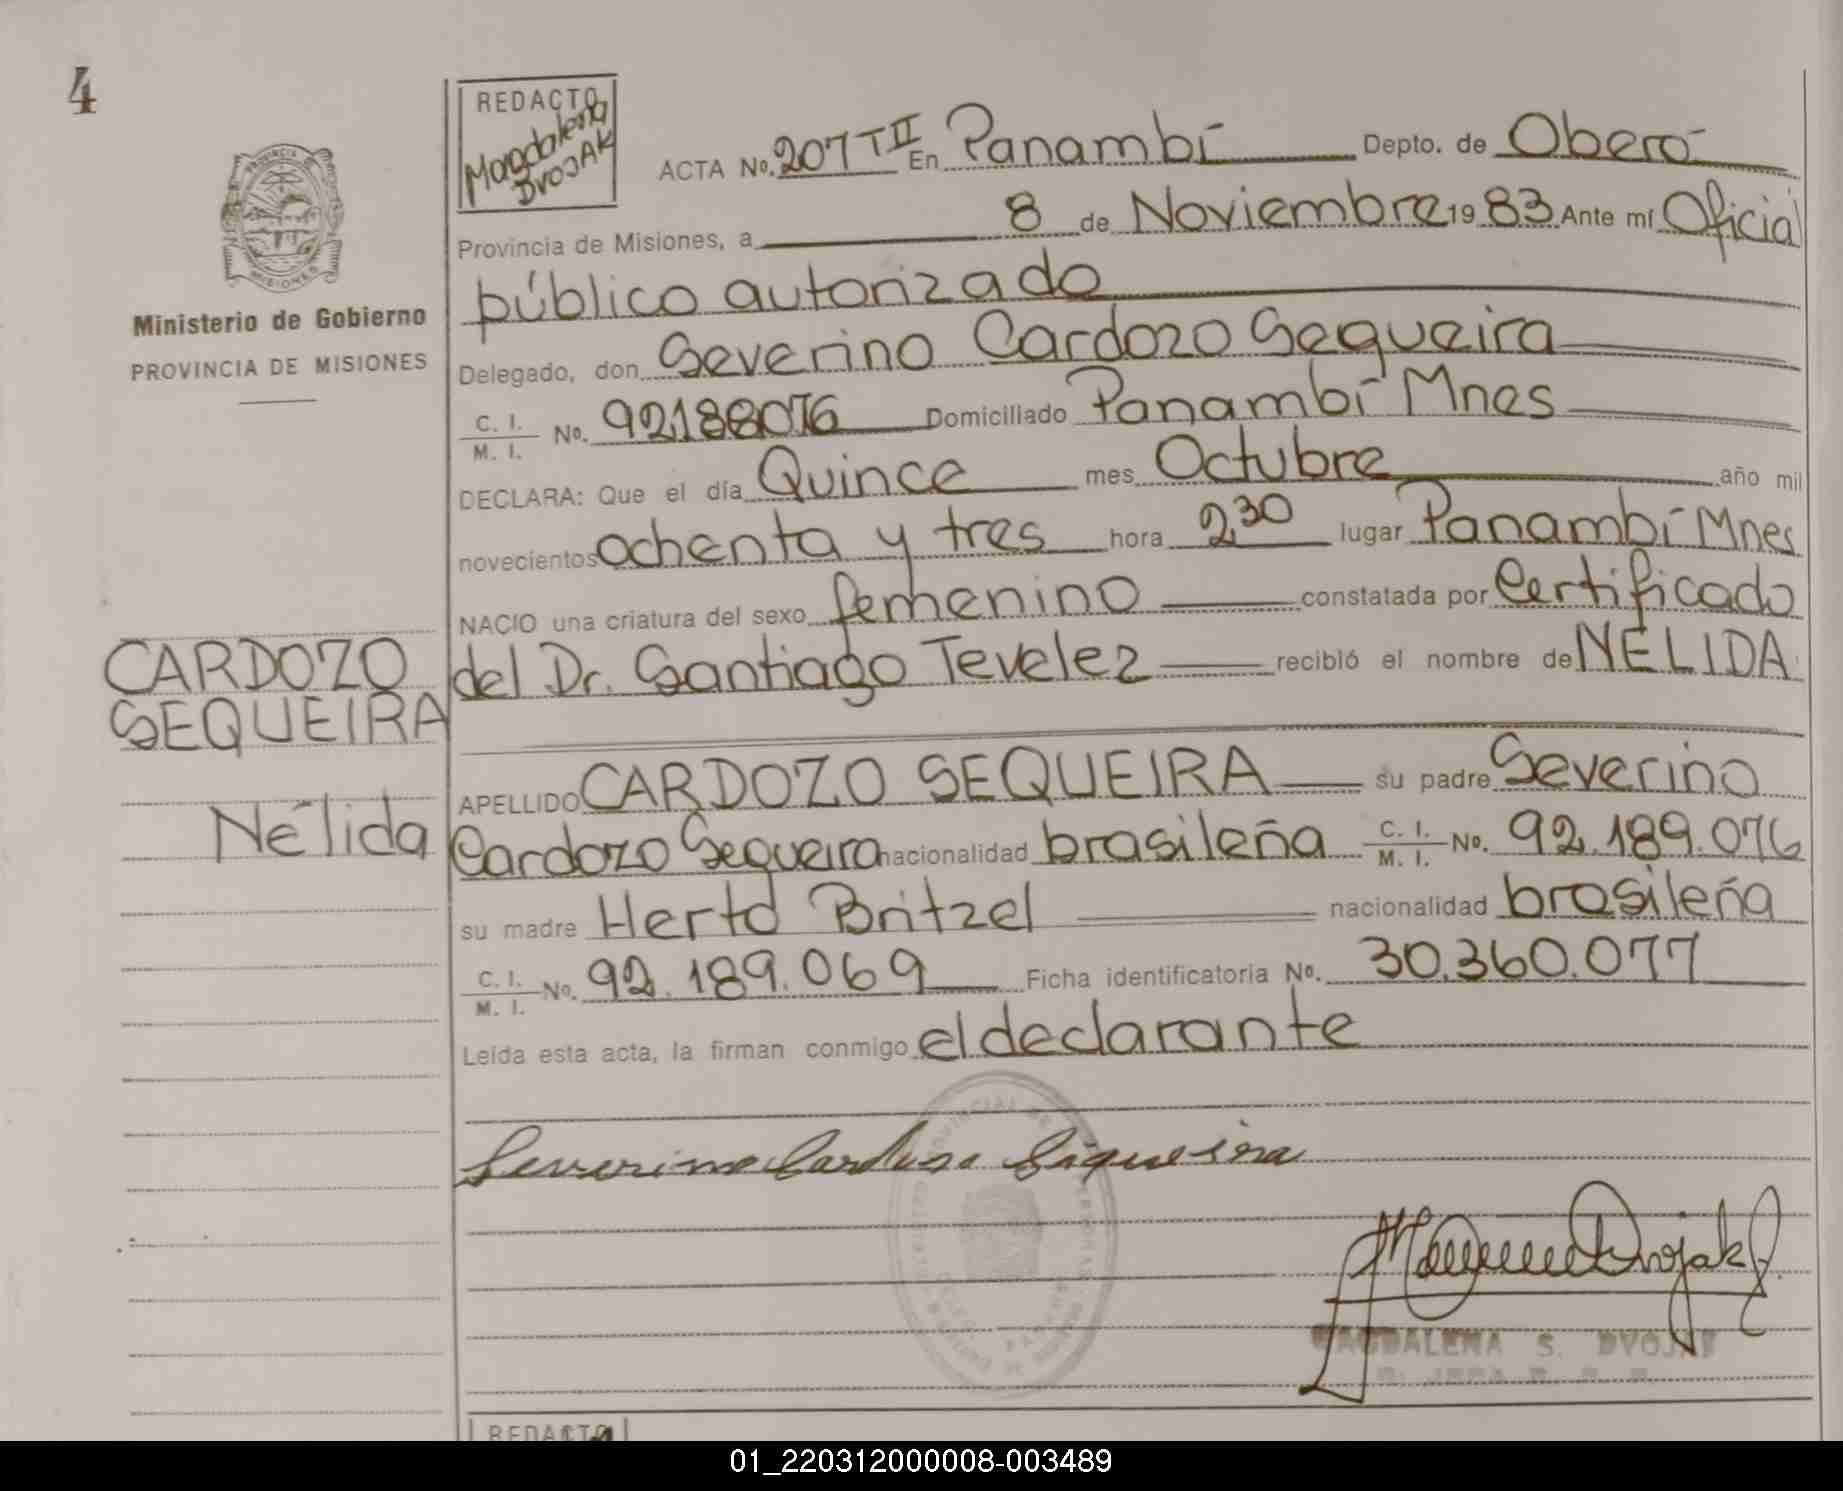 4
REDACTO
Magdalena
DVOJAK
ACTA No. 207 T II En Panambí Depto. de Oberá
Provincia de Misiones, a 8 de Noviembre 19 83 Ante mí Oficial
público autorizado
Ministerio de Gobierno
PROVINCIA DE MISIONES
Delegado, don Severino Cardozo Sequeira
C. I.
M. I. No. 92188076 Domiciliado Panambí Mnes
DECLARA: Que el día Quince mes Octubre año mil
novecientos ochenta y tres hora 2,30 lugar Panambí Mnes
NACIO una criatura del sexo femenino constatada por Certificado
del Dr. Santiago Tevelez recibió el nombre de NÉLIDA
CARDOZO
SEQUEIRA
Nélida
APELLIDO CARDOZO SEQUEIRA su padre Severino
Cardozo Sequeira nacionalidad brasileña C. I.
M. I. No. 92.189.076
su madre Herta Britzel nacionalidad brasileña
C. I.
M. I. No. 92.189.069 Ficha identificatoria No. 30.360.077
Leída esta acta, la firman conmigo el declarante
Severino Cardoso Siqueira
MAGDALENA S. DVOJAK
REDACTO
01_220312000008-003489